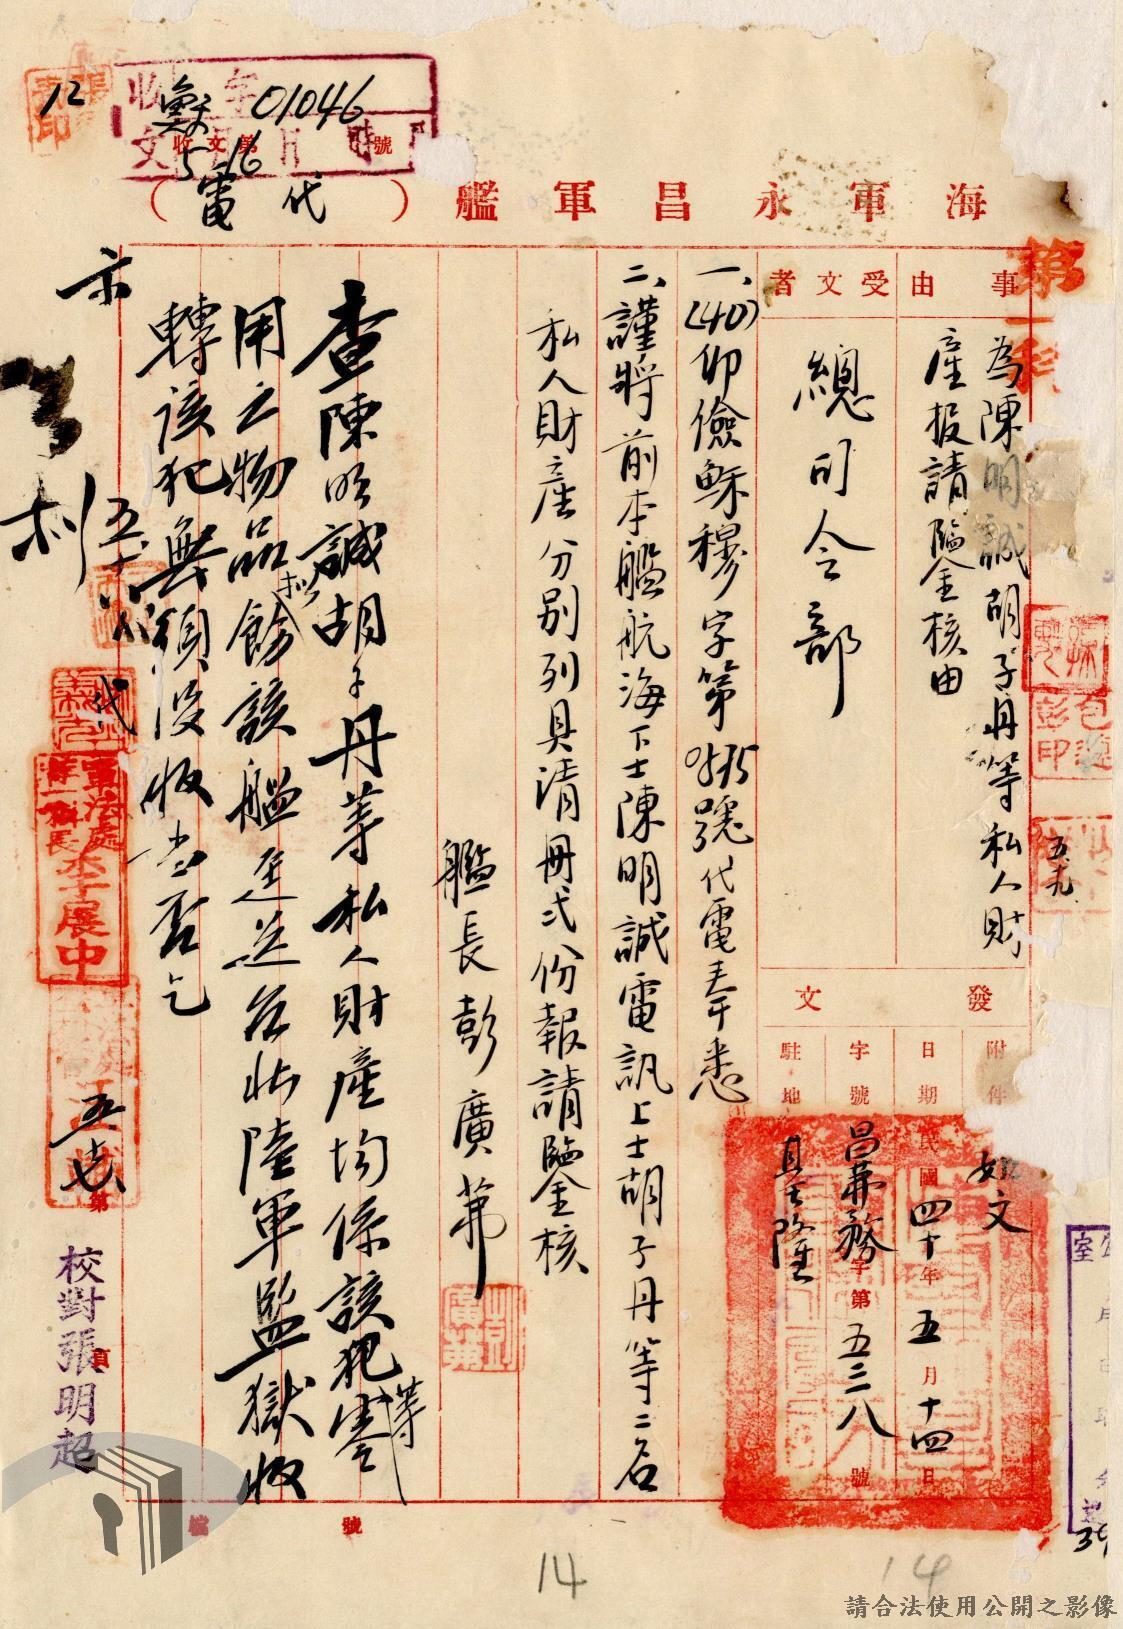 海軍永昌軍艦（代電）
收文第 號
01046
5 16
12
事由
為陳明誠胡子丹等私人財
產报請鑒核由
受文者
總司令部
發文
附件
如文
日期
民國四十年五月十四日
字號
昌兼務字第五三八號
駐地
基隆
一、(40)卯儉穌穆字第 號代電奉悉
二、謹將前本艦航海下士陳明誠電訊上士胡子丹等二名
私人財產分別列具清冊弍份報請鑒核
艦長彭廣茀
查陳明誠胡子丹等私人財產均係該犯等
用之物品擬飭該艦逕送台北陸軍監獄收
轉該犯無須沒收當否乞
示
五六
代
軍法處
第一科長
李展中
五九
五七
校對張明超
第 頁
檔 號
14
14
39
請合法使用公開之影像